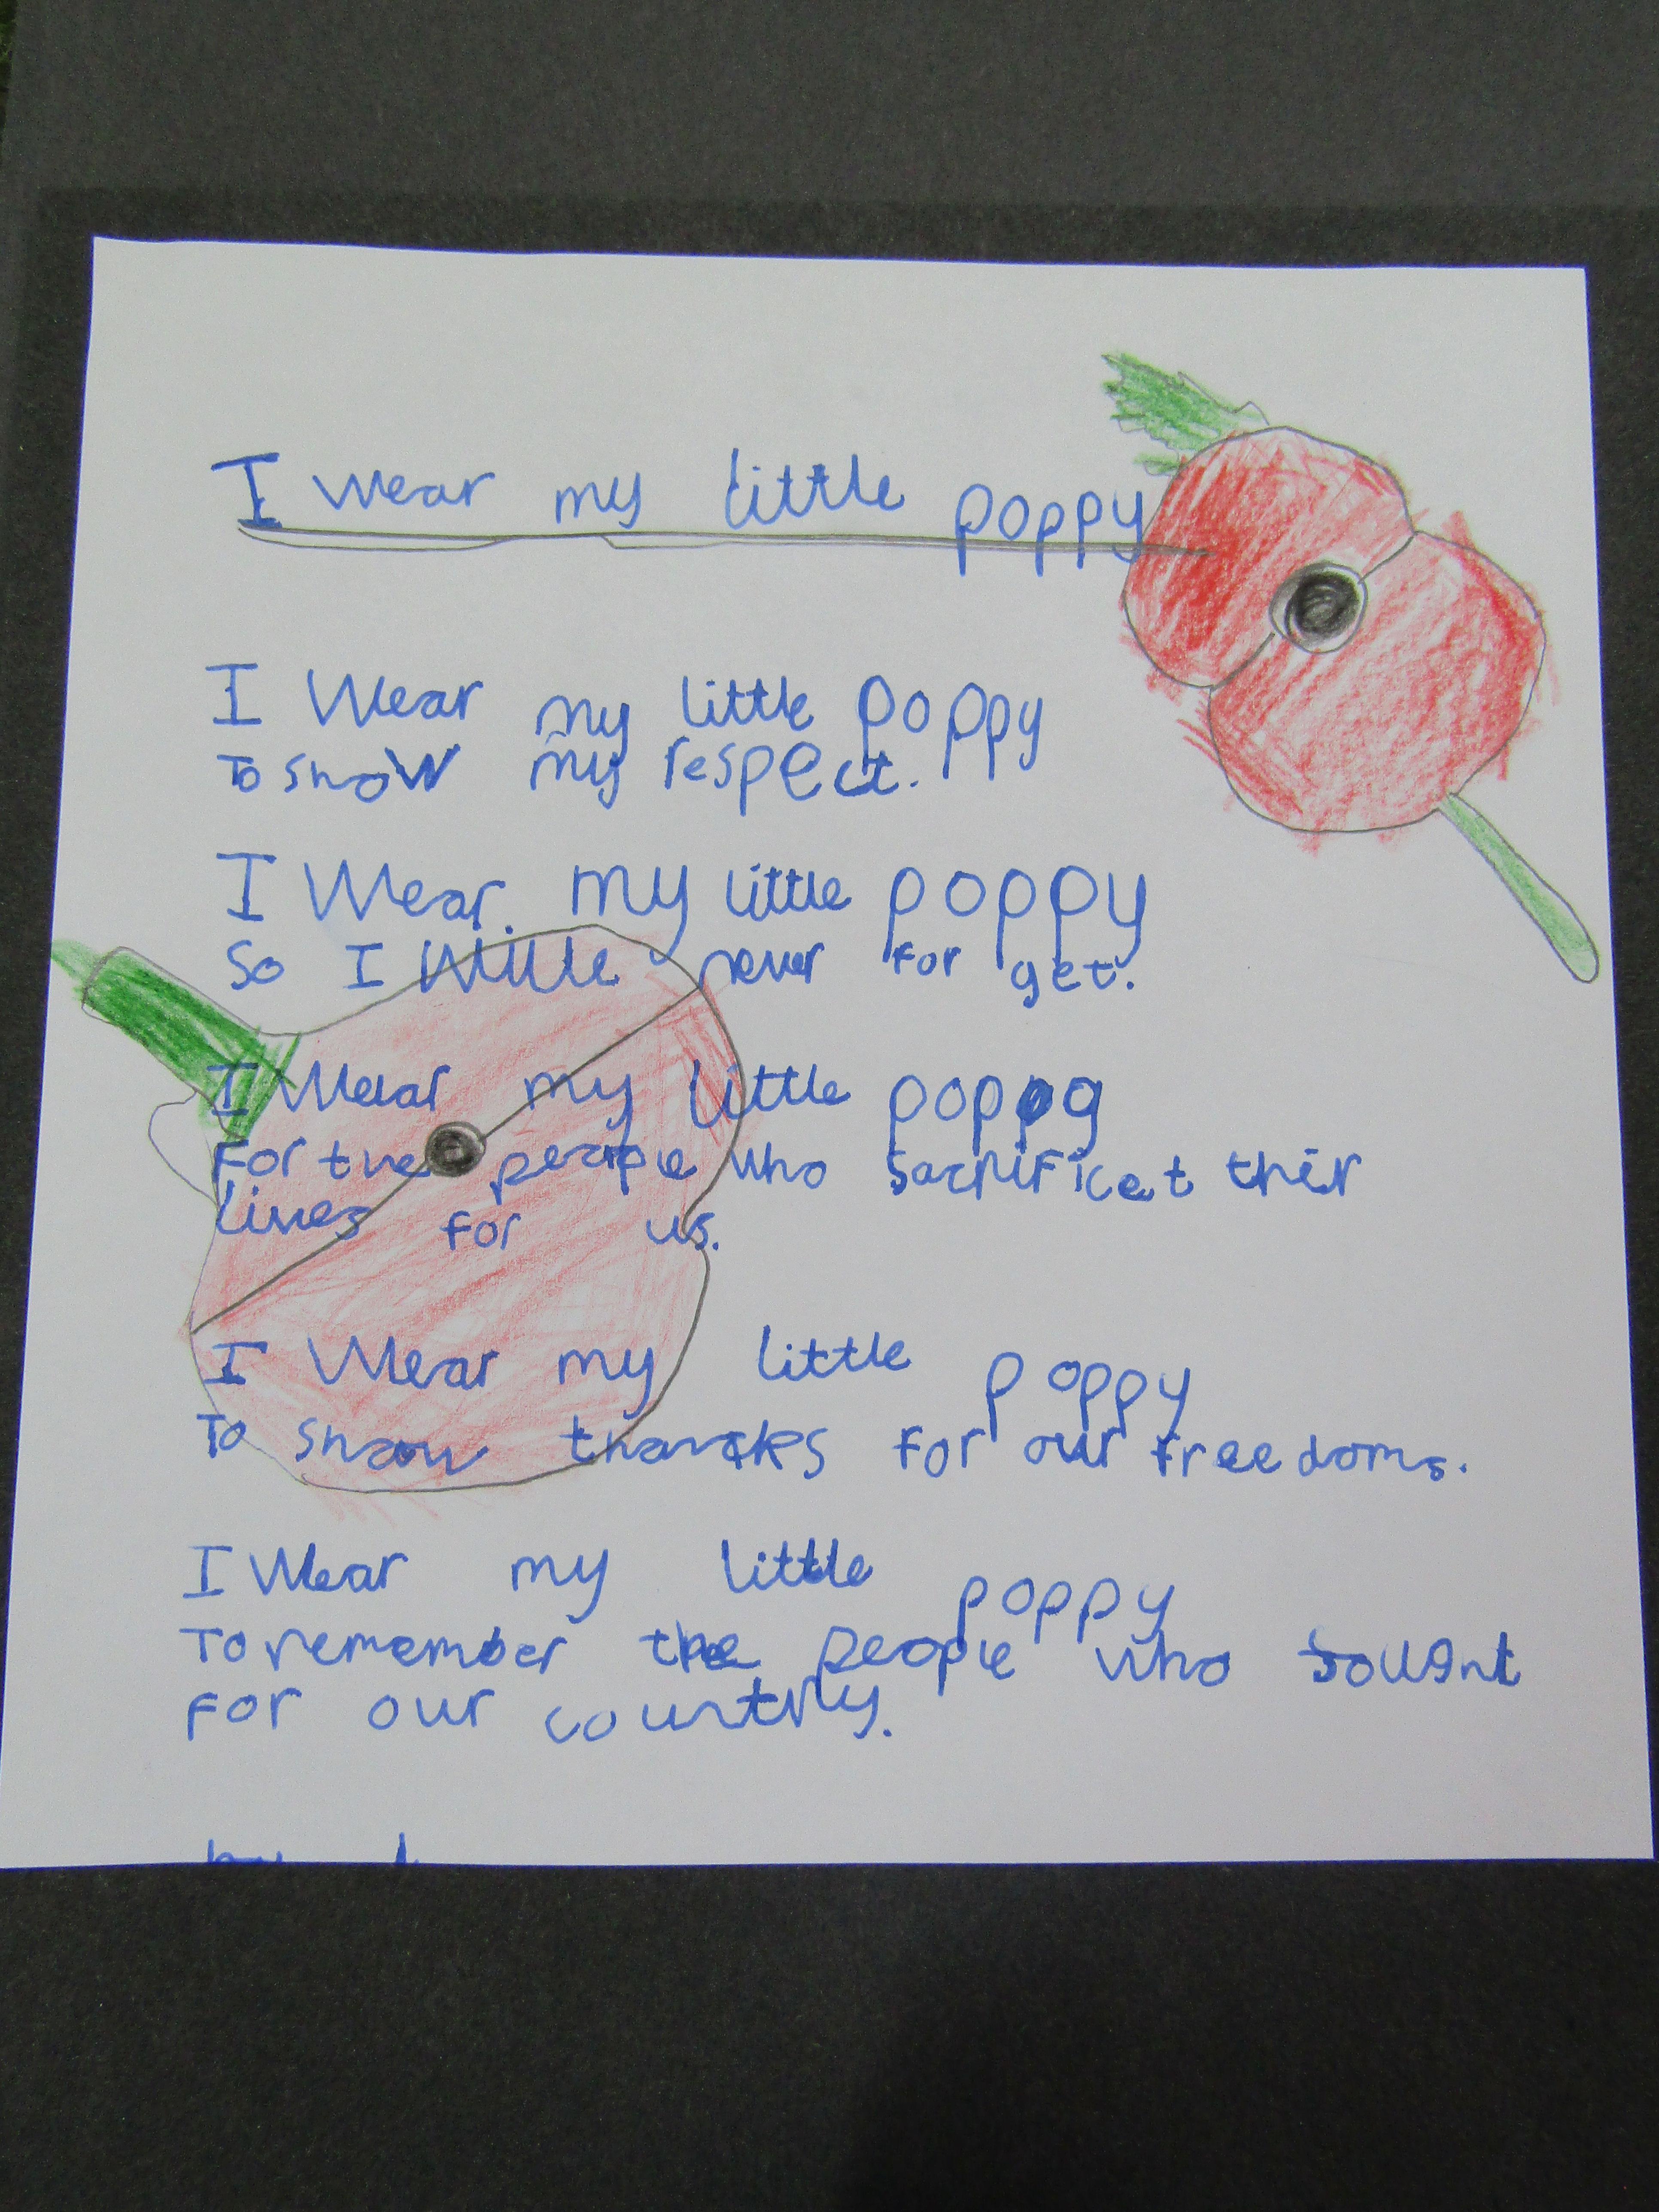 I wear my little poppy
I Wear my little poppy
To show my respect.
I Wear my little poppy
So I Wille never for get.
I Wear my little poppg
For the people who sacrificet thir
lives for us.
I Wear my little poppy
To show thancks for our freedoms.
I Wear my little poppy
To remember the people who fought
for our country.
by